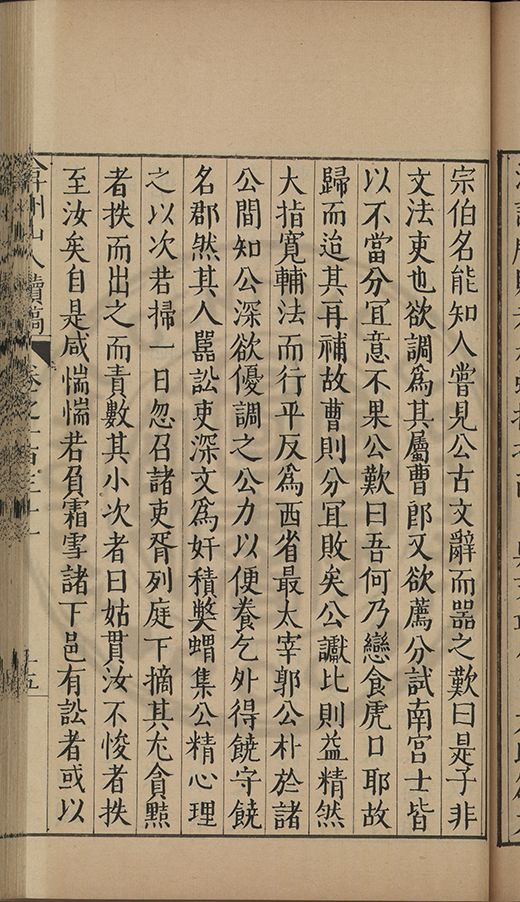 宗伯名能知人嘗見公古文辭而噐之歎曰是子非
文法吏也欲調爲其屬曹郎又欲薦分試南宮士皆
以不當分冝意不果公歎曰吾何乃戀食虎口耶故
歸而迨其再補故曹則分冝敗矣公讞比則益精然
大指寛輔法而行平反爲西省最太宰郭公朴於諸
公間知公深欲優調之公力以便養乞外得饒守饒
名郡然其人嚚訟吏深文爲奸積獘蝟集公精心理
之以次若掃一日忽召諸吏胥列庭下摘其尤貪黠
者抶而出之而責數其小次者曰姑貰汝不悛者抶
至汝矣自是咸惴惴若負霜雪諸下邑有訟者或以
弇州山人續稿
卷之一百三十一
十五